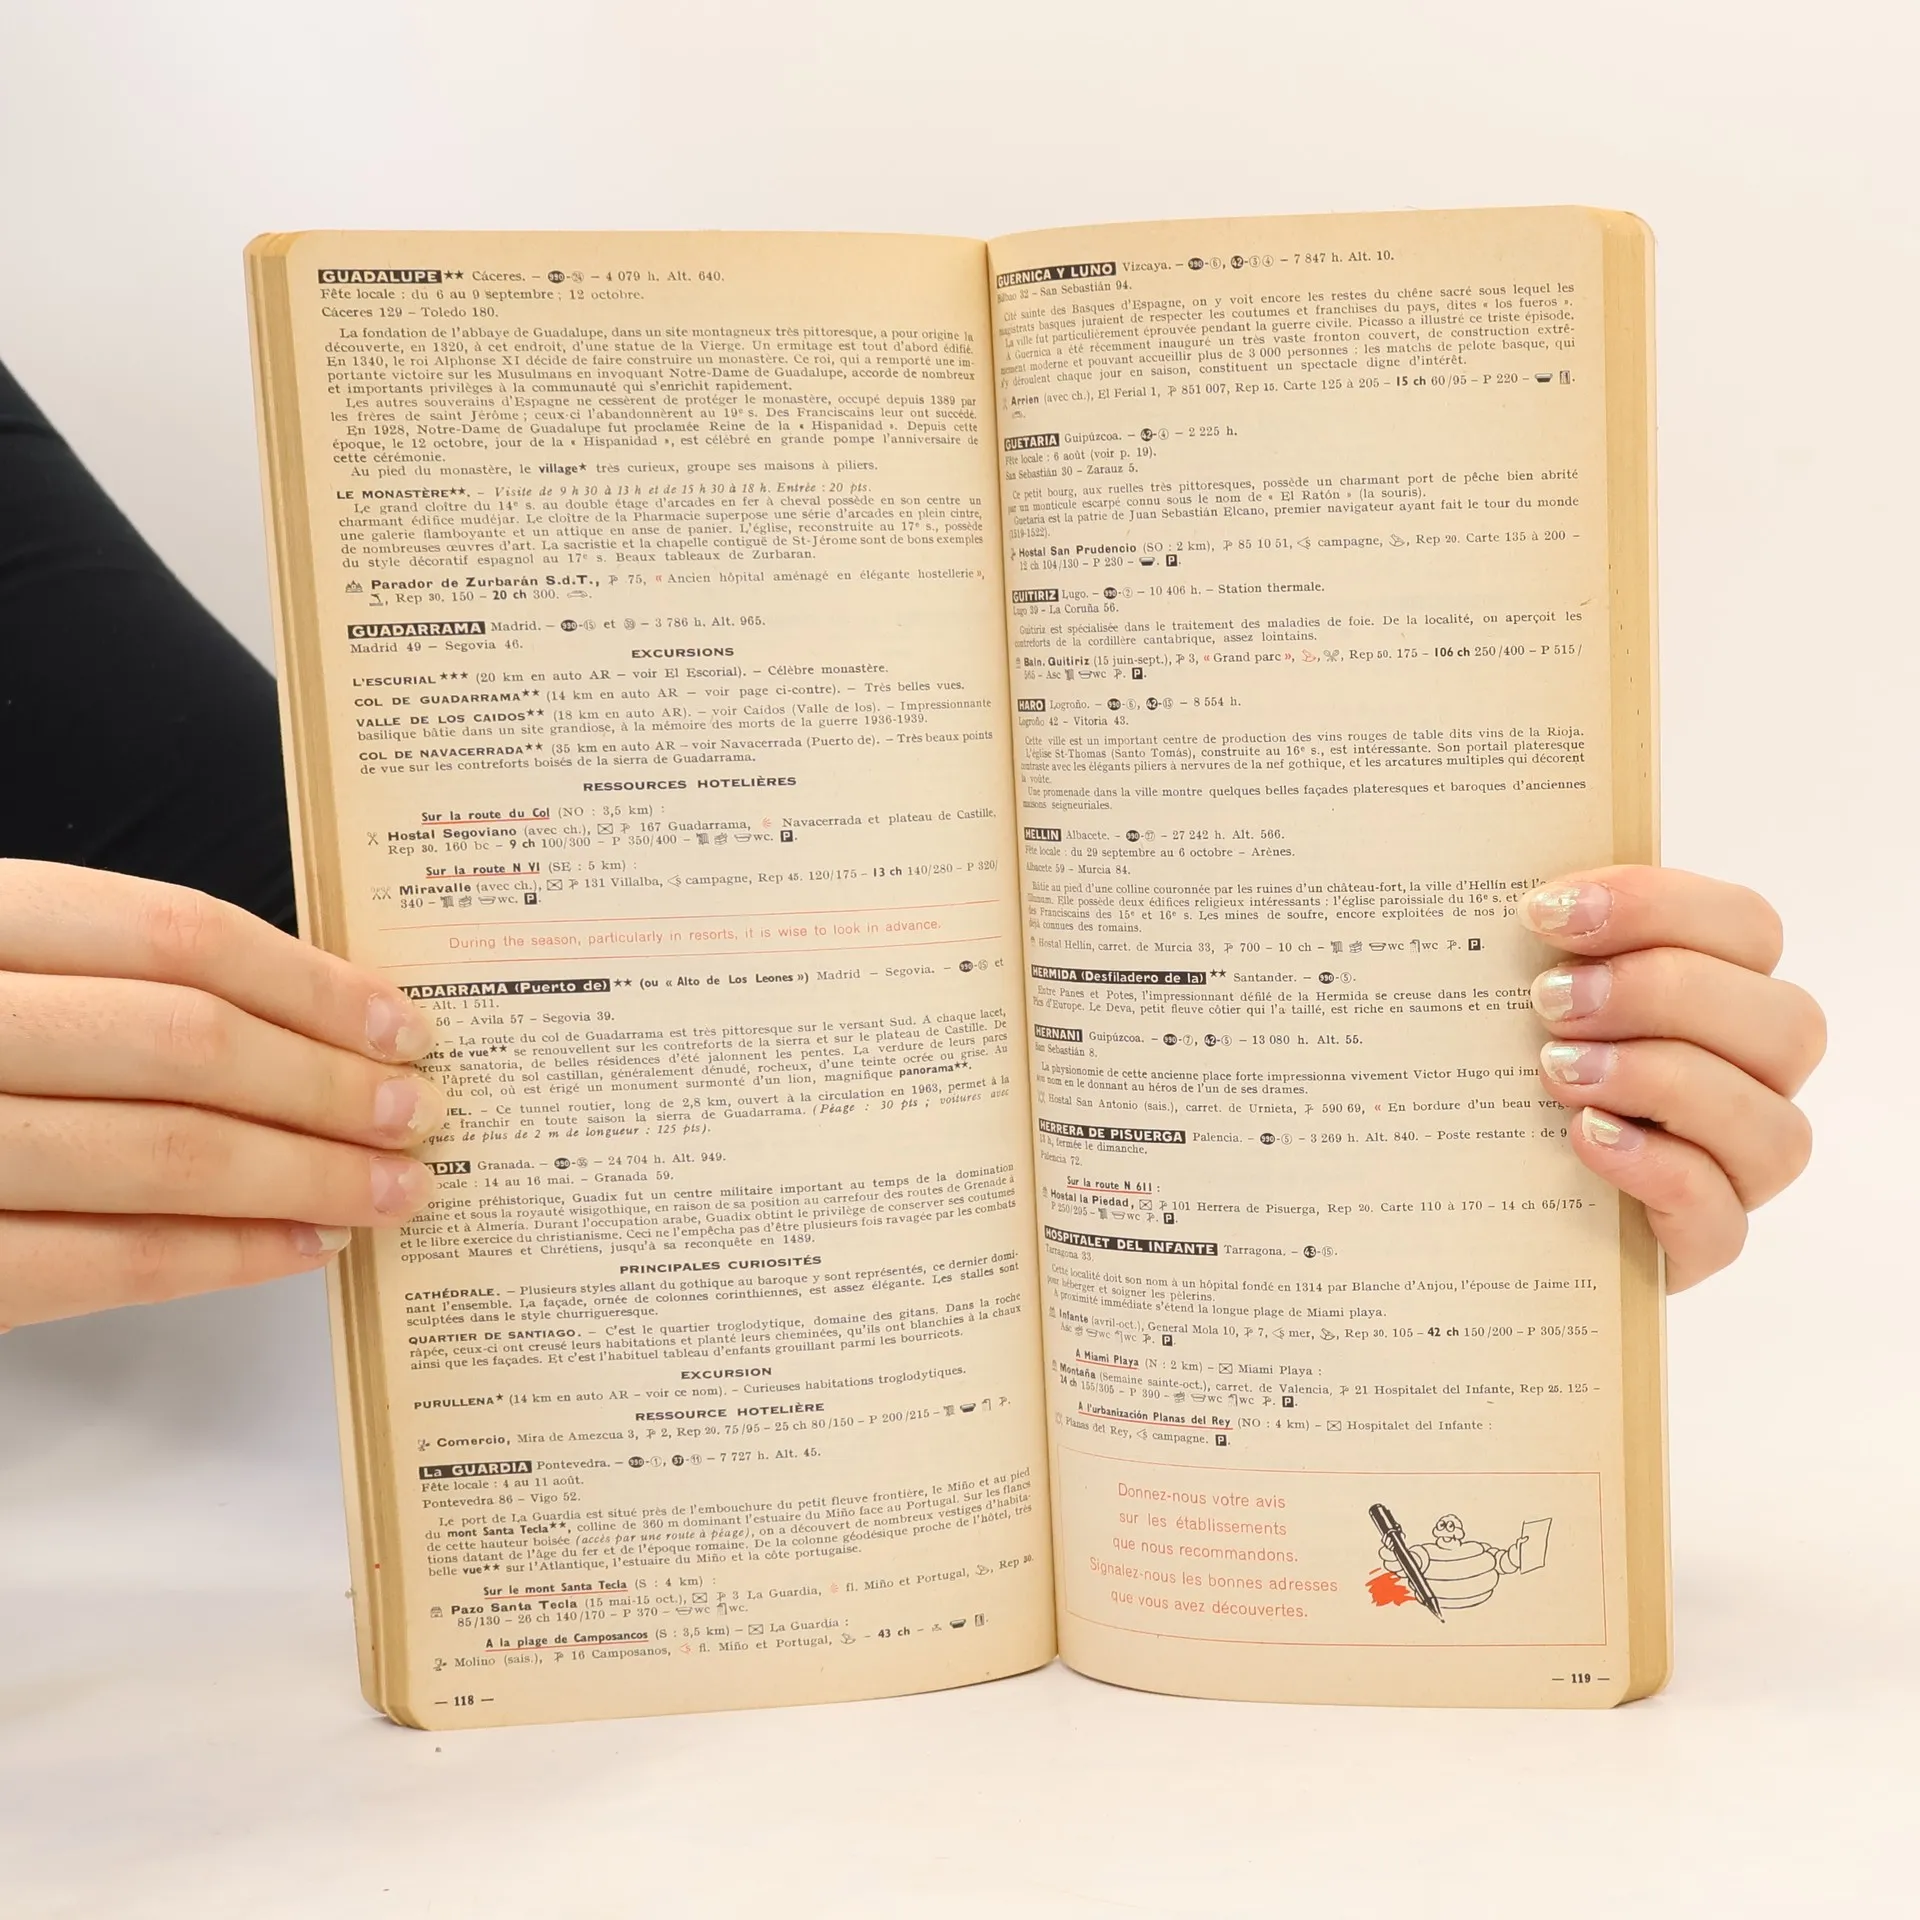 GUADALUPE ★★ Cáceres. – 990-24 – 4 079 h. Alt. 640.
Fête locale : du 6 au 9 septembre ; 12 octobre.
Cáceres 129 – Toledo 180.
La fondation de l'abbaye de Guadalupe, dans un site montagneux très pittoresque, a pour origine la
découverte, en 1320, à cet endroit, d'une statue de la Vierge. Un ermitage est tout d'abord édifié.
En 1340, le roi Alphonse XI décide de faire construire un monastère. Ce roi, qui a remporté une im-
portante victoire sur les Musulmans en invoquant Notre-Dame de Guadalupe, accorde de nombreux
et importants privilèges à la communauté qui s'enrichit rapidement.
Les autres souverains d'Espagne ne cessèrent de protéger le monastère, occupé depuis 1389 par
les frères de saint Jérôme ; ceux-ci l'abandonnèrent au 19e s. Des Franciscains leur ont succédé.
En 1928, Notre-Dame de Guadalupe fut proclamée Reine de la « Hispanidad ». Depuis cette
époque, le 12 octobre, jour de la « Hispanidad », est célébré en grande pompe l'anniversaire de
cette cérémonie.
Au pied du monastère, le village★ très curieux, groupe ses maisons à piliers.
LE MONASTÈRE★★. – Visite de 9 h 30 à 13 h et de 15 h 30 à 18 h. Entrée : 20 pts.
Le grand cloître du 14e s. au double étage d'arcades en fer à cheval possède en son centre un
charmant édifice mudéjar. Le cloître de la Pharmacie superpose une série d'arcades en plein cintre,
une galerie flamboyante et un attique en anse de panier. L'église, reconstruite au 17e s., possède
de nombreuses œuvres d'art. La sacristie et la chapelle contiguë de St-Jérome sont de bons exemples
du style décoratif espagnol au 17e s. Beaux tableaux de Zurbaran.
Parador de Zurbarán S.d.T., 75, « Ancien hôpital aménagé en élégante hostellerie »,
Rep 30. 150 – 20 ch 300.
GUADARRAMA Madrid. – 990-15 et 39 – 3 786 h. Alt. 965.
Madrid 49 – Segovia 46.
EXCURSIONS
L'ESCURIAL ★★★ (20 km en auto AR – voir El Escorial). – Célèbre monastère.
COL DE GUADARRAMA★★ (14 km en auto AR – voir page ci-contre). – Très belles vues.
VALLE DE LOS CAIDOS★★ (18 km en auto AR). – voir Caidos (Valle de los). – Impressionnante
basilique bâtie dans un site grandiose, à la mémoire des morts de la guerre 1936-1939.
COL DE NAVACERRADA★★ (35 km en auto AR – voir Navacerrada (Puerto de). – Très beaux points
de vue sur les contreforts boisés de la sierra de Guadarrama.
RESSOURCES HOTELIÈRES
Sur la route du Col (NO : 3,5 km) :
Hostal Segoviano (avec ch.), 167 Guadarrama, Navacerrada et plateau de Castille,
Rep 30. 160 bc – 9 ch 100/300 – P 350/400 – wc. P.
Sur la route N VI (SE : 5 km) :
Miravalle (avec ch.), 131 Villalba, campagne, Rep 45. 120/175 – 13 ch 140/280 – P 320/
340 – wc. P.
During the season, particularly in resorts, it is wise to look in advance.
ADARRAMA (Puerto de) ★★ (ou « Alto de Los Leones ») Madrid – Segovia. – 990-15 et
– Alt. 1 511.
56 – Avila 57 – Segovia 39.
. – La route du col de Guadarrama est très pittoresque sur le versant Sud. A chaque lacet,
nts de vue★★ se renouvellent sur les contreforts de la sierra et sur le plateau de Castille. De
breux sanatoria, de belles résidences d'été jalonnent les pentes. La verdure de leurs parcs
l'âpreté du sol castillan, généralement dénudé, rocheux, d'une teinte ocrée ou grise. Au
du col, où est érigé un monument surmonté d'un lion, magnifique panorama★★.
EL. – Ce tunnel routier, long de 2,8 km, ouvert à la circulation en 1963, permet à la
e franchir en toute saison la sierra de Guadarrama. (Péage : 30 pts ; voitures avec
ques de plus de 2 m de longueur : 125 pts).
ADIX Granada. – 990-35 – 24 704 h. Alt. 949.
ocale : 14 au 16 mai. – Granada 59.
origine préhistorique, Guadix fut un centre militaire important au temps de la domination
maine et sous la royauté wisigothique, en raison de sa position au carrefour des routes de Grenade à
Murcie et à Almeria. Durant l'occupation arabe, Guadix obtint le privilège de conserver ses coutumes
et le libre exercice du christianisme. Ceci ne l'empêcha pas d'être plusieurs fois ravagée par les combats
opposant Maures et Chrétiens, jusqu'à sa reconquête en 1489.
PRINCIPALES CURIOSITÉS
CATHÉDRALE. – Plusieurs styles allant du gothique au baroque y sont représentés, ce dernier domi-
nant l'ensemble. La façade, ornée de colonnes corinthiennes, est assez élégante. Les stalles sont
sculptées dans le style churrigueresque.
QUARTIER DE SANTIAGO. – C'est le quartier troglodytique, domaine des gitans. Dans la roche
râpée, ceux-ci ont creusé leurs habitations et planté leurs cheminées, qu'ils ont blanchies à la chaux
ainsi que les façades. Et c'est l'habituel tableau d'enfants grouillant parmi les bourricots.
EXCURSION
PURULLENA★ (14 km en auto AR – voir ce nom). – Curieuses habitations troglodytiques.
RESSOURCE HOTELIÈRE
Comercio, Mira de Amezcua 3, 2, Rep 20. 75/95 – 25 ch 80/150 – P 200/215 –
La GUARDIA Pontevedra. – 990-1, 37-11 – 7 727 h. Alt. 45.
Fête locale : 4 au 11 août.
Pontevedra 86 – Vigo 52.
Le port de La Guardia est situé près de l'embouchure du petit fleuve frontière, le Miño et au pied
du mont Santa Tecla★★, colline de 360 m dominant l'estuaire du Miño face au Portugal. Sur les flancs
de cette hauteur boisée (accès par une route à péage), on a découvert de nombreux vestiges d'habita-
tions datant de l'âge du fer et de l'époque romaine. De la colonne géodésique proche de l'hôtel, très
belle vue★★ sur l'Atlantique, l'estuaire du Miño et la côte portugaise.
Sur le mont Santa Tecla (S : 4 km) :
Pazo Santa Tecla (15 mai-15 oct.), 3 La Guardia, fl. Miño et Portugal, Rep 30.
85/130 – 26 ch 140/170 – P 370 – wc wc.
A la plage de Camposancos (S : 3,5 km) – La Guardia :
Molino (sais.), 16 Camposanos, fl. Miño et Portugal, – 43 ch –
— 118 —
GUERNICA Y LUNO Vizcaya. – 990-6, 42-3 4 – 7 847 h. Alt. 10.
Bilbao 32 – San Sebastián 94.
Cité sainte des Basques d'Espagne, on y voit encore les restes du chêne sacré sous lequel les
magistrats basques juraient de respecter les coutumes et franchises du pays, dites « los fueros ».
La ville fut particulièrement éprouvée pendant la guerre civile. Picasso a illustré ce triste épisode.
A Guernica a été récemment inauguré un très vaste fronton couvert, de construction extrê-
mement moderne et pouvant accueillir plus de 3 000 personnes : les matchs de pelote basque, qui
s'y déroulent chaque jour en saison, constituent un spectacle digne d'intérêt.
Arrien (avec ch.), El Ferial 1, 851 007, Rep 15. Carte 125 à 205 – 15 ch 60/95 – P 220 –
GUETARIA Guipúzcoa. – 42-4 – 2 225 h.
Fête locale : 6 août (voir p. 19).
San Sebastián 30 – Zarauz 5.
Ce petit bourg, aux ruelles très pittoresques, possède un charmant port de pêche bien abrité
par un monticule escarpé connu sous le nom de « El Ratón » (la souris).
Guetaria est la patrie de Juan Sebastián Elcano, premier navigateur ayant fait le tour du monde
(1519-1522).
Hostal San Prudencio (SO : 2 km), 85 10 51, campagne, Rep 20. Carte 135 à 200 –
12 ch 104/130 – P 230 – P.
GUITIRIZ Lugo. – 990-2 – 10 406 h. – Station thermale.
Lugo 39 – La Coruña 56.
Guitiriz est spécialisée dans le traitement des maladies de foie. De la localité, on aperçoit les
contreforts de la cordillère cantabrique, assez lointains.
Baln. Guitiriz (15 juin-sept.), 3, « Grand parc », Rep 50. 175 – 106 ch 250/400 – P 515/
565 – Asc wc P.
HARO Logroño. – 990-6, 42-15 – 8 554 h.
Logroño 42 – Vitoria 43.
Cette ville est un important centre de production des vins rouges de table dits vins de la Rioja.
L'église St-Thomas (Santo Tomás), construite au 16e s., est intéressante. Son portail plateresque
contraste avec les élégants piliers à nervures de la nef gothique, et les arcatures multiples qui décorent
la voûte.
Une promenade dans la ville montre quelques belles façades plateresques et baroques d'anciennes
maisons seigneuriales.
HELLIN Albacete. – 990-27 – 27 242 h. Alt. 566.
Fête locale : du 29 septembre au 6 octobre – Arènes.
Albacete 59 – Murcia 84.
Bâtie au pied d'une colline couronnée par les ruines d'un château-fort, la ville d'Hellín est
Illunum. Elle possède deux édifices religieux intéressants : l'église paroissiale du 16e s. et
des Franciscains des 15e et 16e s. Les mines de soufre, encore exploitées de nos jo
déjà connues des romains.
Hostal Hellín, carret. de Murcia 33, 700 – 10 ch – wc wc P.
HERMIDA (Desfiladero de la) ★★ Santander. – 990-5.
Entre Panes et Potes, l'impressionnant défilé de la Hermida se creuse dans les contre
Pics d'Europe. Le Deva, petit fleuve côtier qui l'a taillé, est riche en saumons et en truit
HERNANI Guipúzcoa. – 990-7, 42-5 – 13 080 h. Alt. 55.
San Sebastián 8.
La physionomie de cette ancienne place forte impressionna vivement Victor Hugo qui im
son nom en le donnant au héros de l'un de ses drames.
Hostal San Antonio (sais.), carret. de Urnieta, 590 69, « En bordure d'un beau verg
HERRERA DE PISUERGA Palencia. – 990-5 – 3 269 h. Alt. 840. – Poste restante : de 9
h, fermée le dimanche.
Palencia 72.
Sur la route N 611 :
Hostal la Piedad, 101 Herrera de Pisuerga, Rep 20. Carte 110 à 170 – 14 ch 65/175 –
P 250/295 – wc P.
HOSPITALET DEL INFANTE Tarragona. – 43-15.
Tarragona 33.
Cette localité doit son nom à un hôpital fondé en 1314 par Blanche d'Anjou, l'épouse de Jaime III,
pour héberger et soigner les pèlerins.
A proximité immédiate s'étend la longue plage de Miami playa.
Infante (avril-oct.), General Mola 10, 7, mer, Rep 30. 105 – 42 ch 150/200 – P 305/355 –
Asc wc wc P.
A Miami Playa (N : 2 km) – Miami Playa :
Montaña (Semaine sainte-oct.), carret. de Valencia, 21 Hospitalet del Infante, Rep 25. 125 –
24 ch 155/305 – P 390 – wc wc P.
A l'urbanización Planas del Rey (NO : 4 km) – Hospitalet del Infante :
Planas del Rey, campagne. P.
Donnez-nous votre avis
sur les établissements
que nous recommandons.
Signalez-nous les bonnes adresses
que vous avez découvertes.
— 119 —